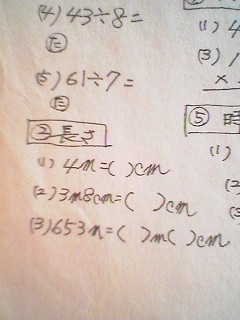 (4) 43÷8=
た
(5) 61÷7=
た
② 長さ
(1) 4m=( )cm
(2) 3m8cm=( )cm
(3) 653m=( )m( )cm
(1) 4
(3) 1
×
⑤ 時
(1)
(2
(3